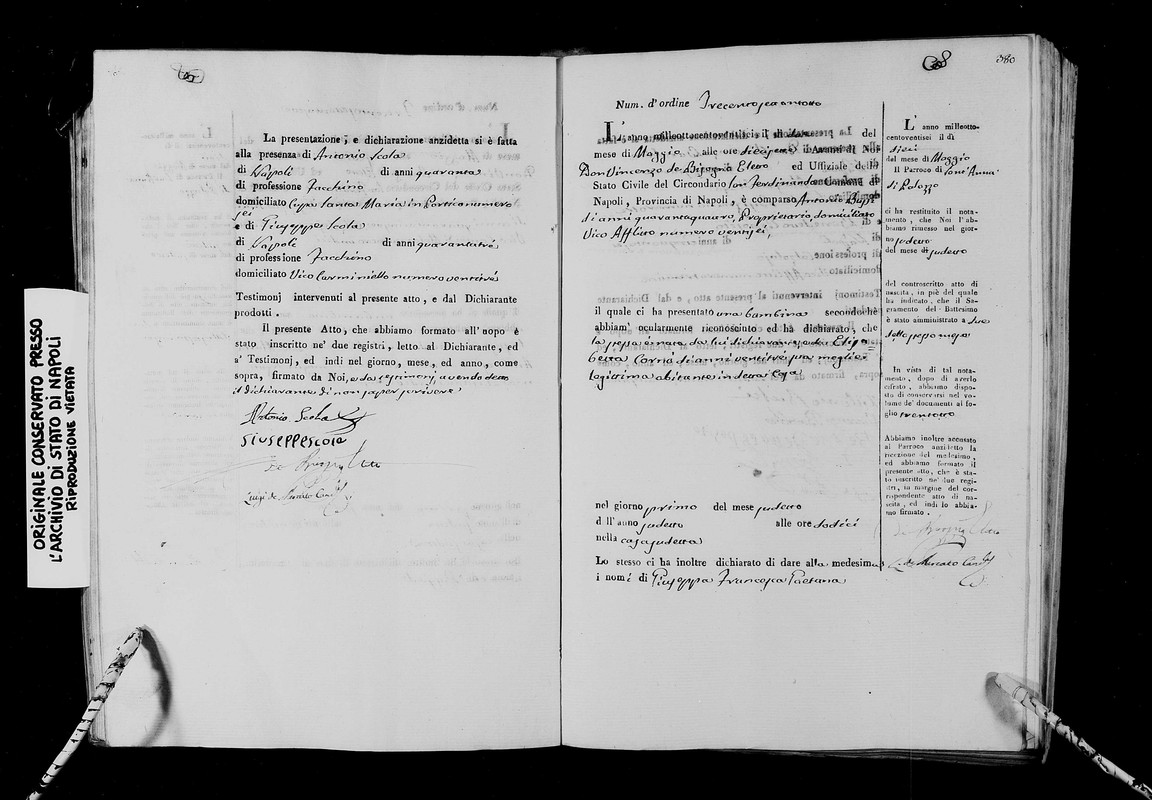 ORIGINALE CONSERVATO PRESSO
L'ARCHIVIO DI STATO DI NAPOLI
RIPRODUZIONE VIETATA
La presentazione, e dichiarazione anzidetta si è fatta
alla presenza di Antonio Scola
di Napoli di anni quaranta
di professione Facchino
domiciliato Cupa Santa Maria in Portico numero
sei
e di Giuseppe Scola
di Napoli di anni quarantatré
di professione Facchino
domiciliato Vico Carminiello numero ventitré
Testimonj intervenuti al presente atto, e dal Dichiarante
prodotti.
Il presente Atto, che abbiamo formato all'uopo è
stato inscritto ne' due registri, letto al Dichiarante, ed
a' Testimonj, ed indi nel giorno, mese, ed anno, come
sopra, firmato da Noi, e da testimonj, avendo detto
il dichiarante di non saper scrivere
Antonio Scola
Giuseppe Scola
Luigi de Mercato
380
Num. d'ordine Trecentosessantotto
L'anno milleottocentoventisei il dì del
mese di Maggio alle ore dieci avanti di Noi
Don Vincenzo de Bisogno Eletto ed Uffiziale dello
Stato Civile del Circondario San Ferdinando Comune di
Napoli, Provincia di Napoli, è comparso Antonio
di anni quarantaquattro, Proprietario domiciliato
Vico Afflitto numero ventisei,
il quale ci ha presentato una bambina secondochè
abbiam' ocularmente riconosciuto ed ha dichiarato, che
la stessa è nata da lui dichiarante e da Elisa=
betta Corna di anni ventitré sua moglie
legittima abitante in detta casa
nel giorno primo del mese sudetto
dell'anno sudetto alle ore dodici
nella casa sudetta
Lo stesso ci ha inoltre dichiarato di dare alla medesima
i nomi di Giuseppa Francesca Gaetana
L'anno milleotto-
centoventisei il dì
dieci
del mese di Maggio
Il Parroco di Sant'Anna
di Palazzo
ci ha restituito il nota-
mento, che Noi l'ab-
biamo rimesso nel gior-
no sudetto
del mese di sudetto
del controscritto atto di
nascita, in piè del quale
ha indicato, che il Sa-
gramento del Battesimo
è stato amministrato a due
detto stesso mese
In vista di tal nota-
mento, dopo di averlo
cifrato, abbiamo dispo-
sto di conservarsi nel vo-
lume de' documenti al fo-
glio trentotto
Abbiamo inoltre accusato
al Parroco anzidetto la
ricezione del medesimo,
ed abbiamo formato il
presente atto, che è sta-
to inscritto ne' due regi-
stri, in margine del cor-
rispondente atto di na-
scita, ed indi lo abbia-
mo firmato.
de Mercato